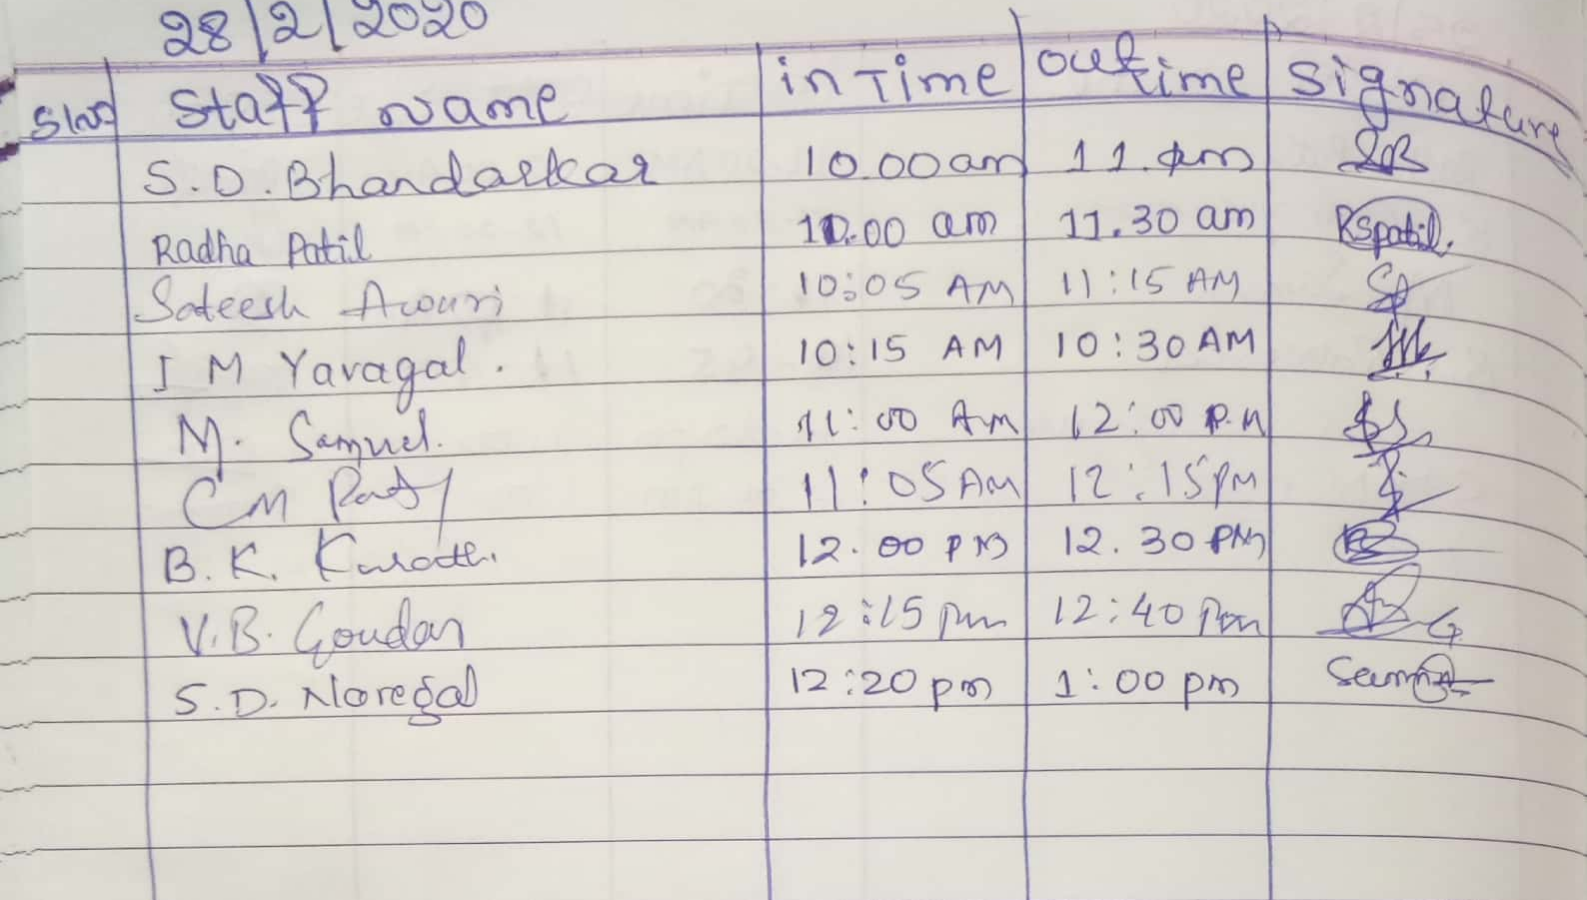 28/2/2020
Slno Staff Name in Time out time Signature
S.D. Bhandarkar 10.00 am 11. am SDB
Radha Patil 10.00 am 11.30 am RSpatil.
Sateesh Awuri 10:05 AM 11:15 AM
I M Yaragal. 10:15 AM 10:30 AM
M. Samuel. 11:00 AM 12:00 P.M
CM 11:05 AM 12:15 PM
B. K. 12.00 PM 12.30 PM
V.B. Goudar 12:15 pm 12:40 Pm
S.D. Naregal 12:20 pm 1:00 pm